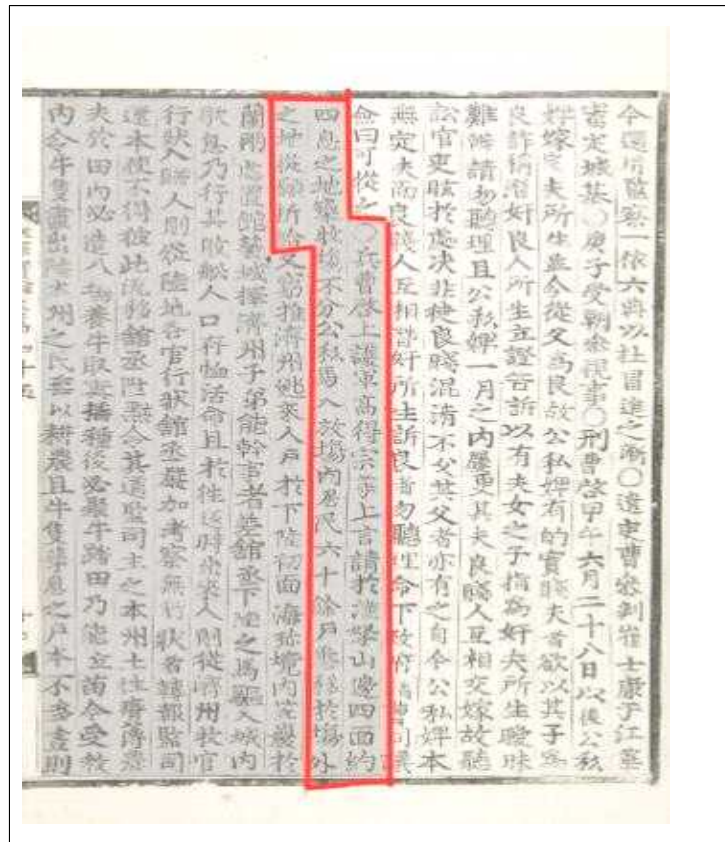 今選用監察一依六典以杜冒進之漸○遣吏曹參判崔士康于江華
審定城基○庚子受朝參視事○刑曹啓甲午六月二十八日以後公私
婢嫁定夫所生並令從父爲良故公私婢有的實賤夫者欲以其子爲
良詐稱潛奸良人所生立證告訴以有夫女之子指爲奸夫所生曖昧
難辨請勿聽理且公私婢一月之內屢更其夫良賤人互相交嫁故聽
訟官吏眩於處決非徒良賤混淆不父其父者亦有之自今公私婢本
無定夫而良賤人互相潛奸所生訴良者勿聽理令下政府諸曹同議
僉曰可從之○兵曹啓上護軍高得宗等上言請於漢拏山邊四面約
四息之地築牧場不分公私馬入放場內居民六十餘戶悉移於場外
之地從願折給又窮推濟州逃來人戶於下陸初面海珍境內完聚於
蘭朔處置館築城擇濟州子弟能幹官者差館丞下陸之馬驅入城內
歇息乃行其敗船人口存恤活命且於往還時出來人則從濟州牧官
行狀入歸人則從陸地各官行狀館丞嚴加考察無行狀者轉報監司
還本使不得彼此流移館丞陞黜令其道監司主之本州土性瘠薄農
夫於田內必造八場養牛取糞播種後必聚牛踏田乃能立苗今受敎
內令牛隻盡出陸大州之民並以耕農且牛隻孳息之戶本不多晝則